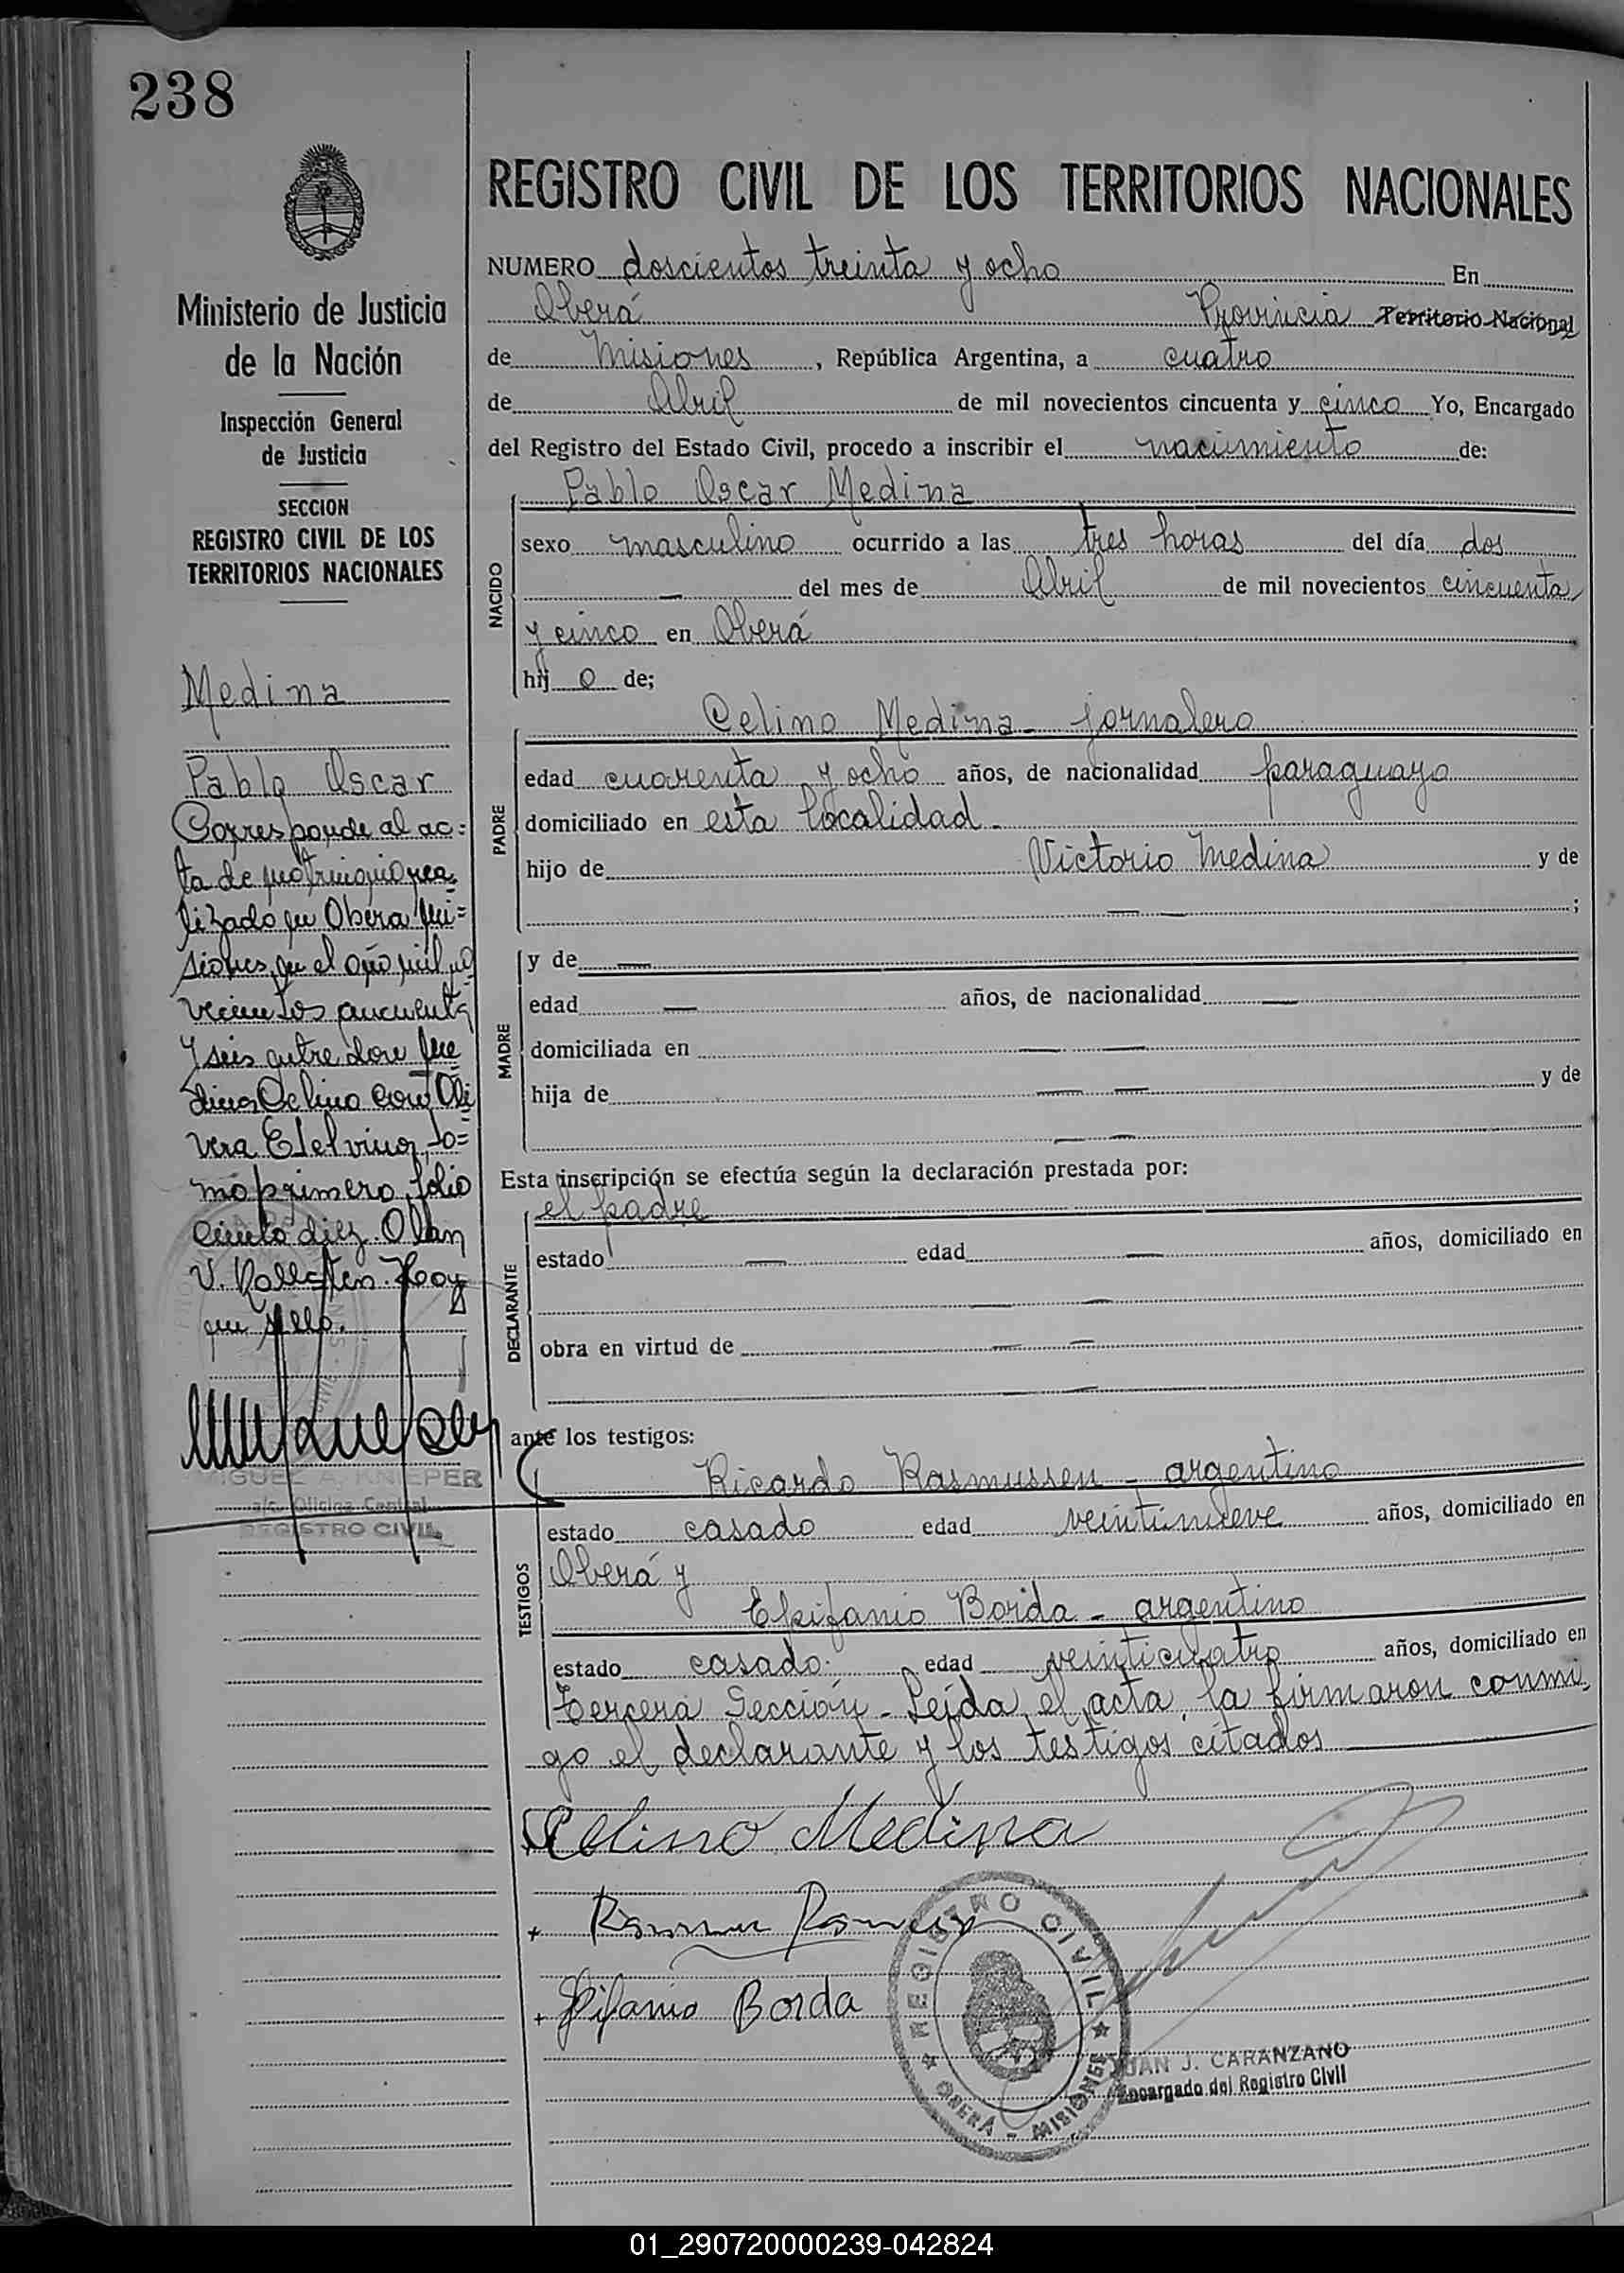 238
Ministerio de Justicia
de la Nación
Inspección General
de Justicia
SECCION
REGISTRO CIVIL DE LOS
TERRITORIOS NACIONALES
Medina
Pablo Oscar
Corresponde al ac=
ta de matrimonio rea
lizado en Oberá Mi=
siones, en el año mil no
vecientos cincuenta
y seis entre don Me
dina Celino con Oli
vera Etelvina, to=
mo primero, folio
ciento diez.
V. Hay
un sello.
MIGUEL A. KNIEPER
a/c. Oficina Central
REGISTRO CIVIL
REGISTRO CIVIL DE LOS TERRITORIOS NACIONALES
NUMERO doscientos treinta y ocho En
Oberá Provincia Territorio Nacional
de Misiones, República Argentina, a cuatro
de Abril de mil novecientos cincuenta y cinco Yo, Encargado
del Registro del Estado Civil, procedo a inscribir el nacimiento de:
Pablo Oscar Medina
NACIDO
sexo masculino ocurrido a las tres horas del día dos
— del mes de Abril de mil novecientos cincuenta
y cinco en Oberá
hij o de;
Celino Medina - jornalero
PADRE
edad cuarenta y ocho años, de nacionalidad paraguayo
domiciliado en esta localidad -
hijo de Victorio Medina y de
— — ;
MADRE
y de —
edad — años, de nacionalidad —
domiciliada en — —
hija de — — y de
— —
Esta inscripción se efectúa según la declaración prestada por:
el padre
DECLARANTE
estado — edad — años, domiciliado en
— —
obra en virtud de — —
— —
ante los testigos:
Ricardo Rasmussen - argentino
TESTIGOS
estado casado edad veintinueve años, domiciliado en
Oberá y
Epifanio Borda - argentino
estado casado edad veinticuatro años, domiciliado en
Tercera Sección - Leída el acta, la firmaron conmi
go el declarante y los testigos citados
Celino Medina
Epifanio Borda
REGISTRO CIVIL
OBERÁ - MISIONES
JUAN J. CARANZANO
Encargado del Registro Civil
01_290720000239-042824